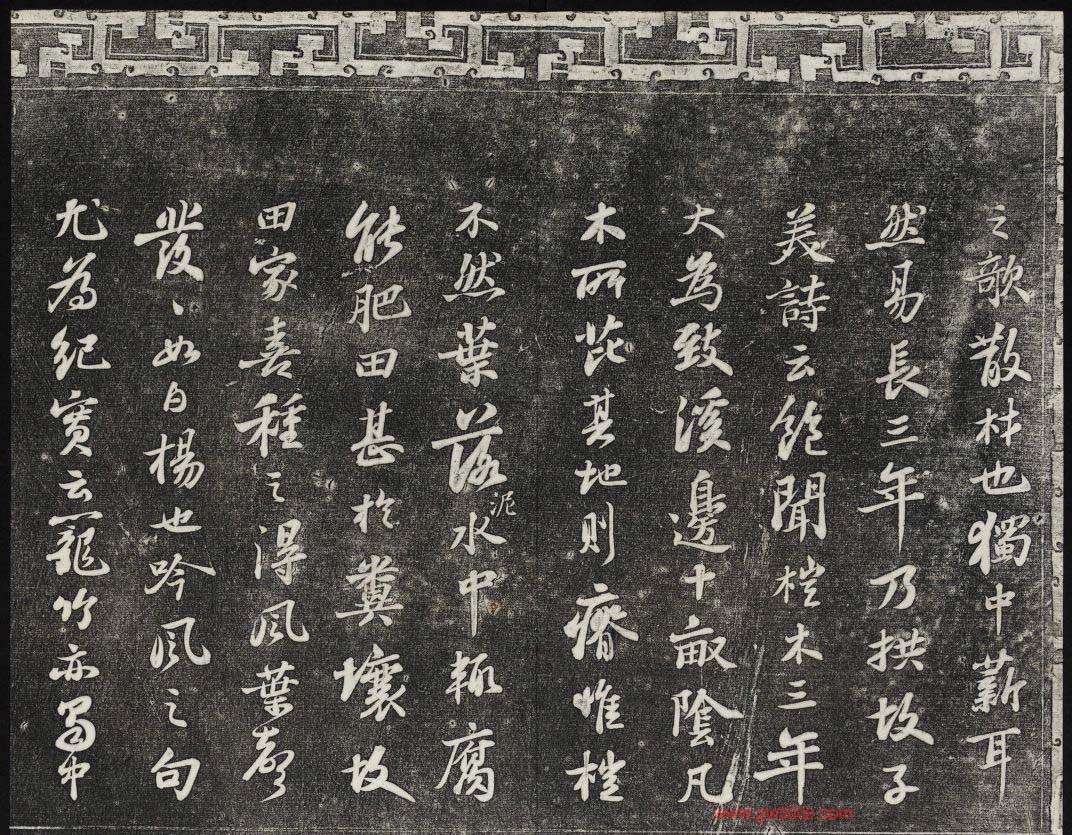 之歌散材也獨中薪耳
然易長三年乃拱故子
美詩云飽聞榿木三年
大為致溪邊十畝陰凡
木所芘其地則瘠惟榿
不然葉落泥水中輒腐
能肥田甚於糞壤故
田家喜種之得風葉聲
發〻如白楊也吟風之句
尤為紀實云籠竹亦蜀中
www.gw5000.com